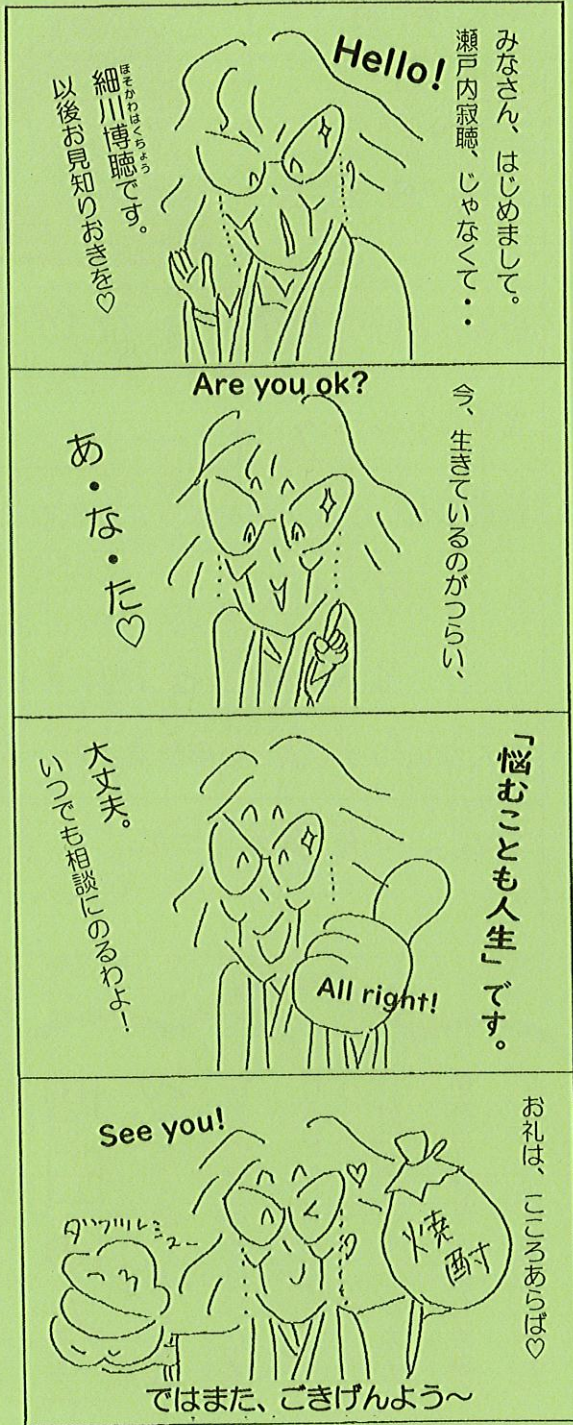 みなさん、はじめまして。
瀬戸内寂聴、じゃなくて・・
Hello!
細川博聴です。
ほそかわはくちょう
以後お見知りおきを♡
Are you ok?
今、生きているのがつらい、
あ・な・た♡
「悩むことも人生」です。
All right!
大丈夫。
いつでも相談にのるわよ！
お礼は、こころあらば♡
See you!
焼酎
ではまた、ごきげんよう～